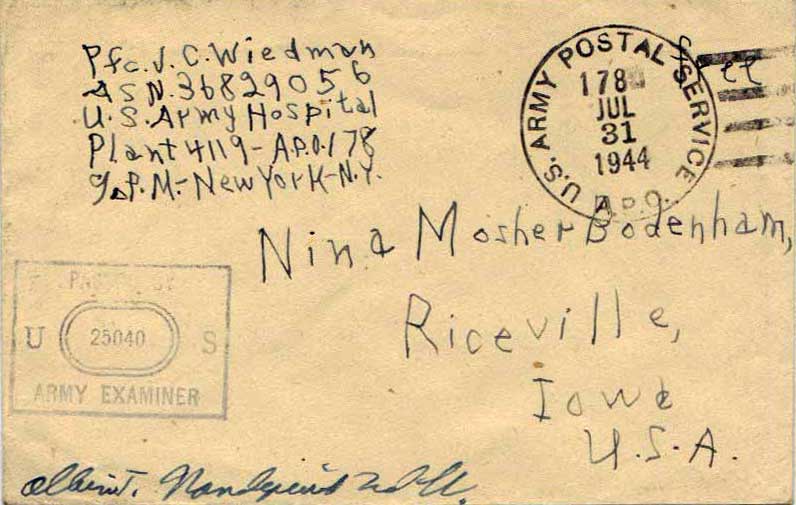 Pfc. J. C. Wiedman
ASN. 36829056
U.S. Army Hospital
Plant 4119 - A.P.O. 178
℅ P.M. - New York - N.Y.
U.S. ARMY POSTAL SERVICE
178
JUL
31
1944
A.P.O.
Free
Nina Mosher Bodenham,
Riceville,
Iowa
U.S.A.
PASSED BY
U 25040 S
ARMY EXAMINER